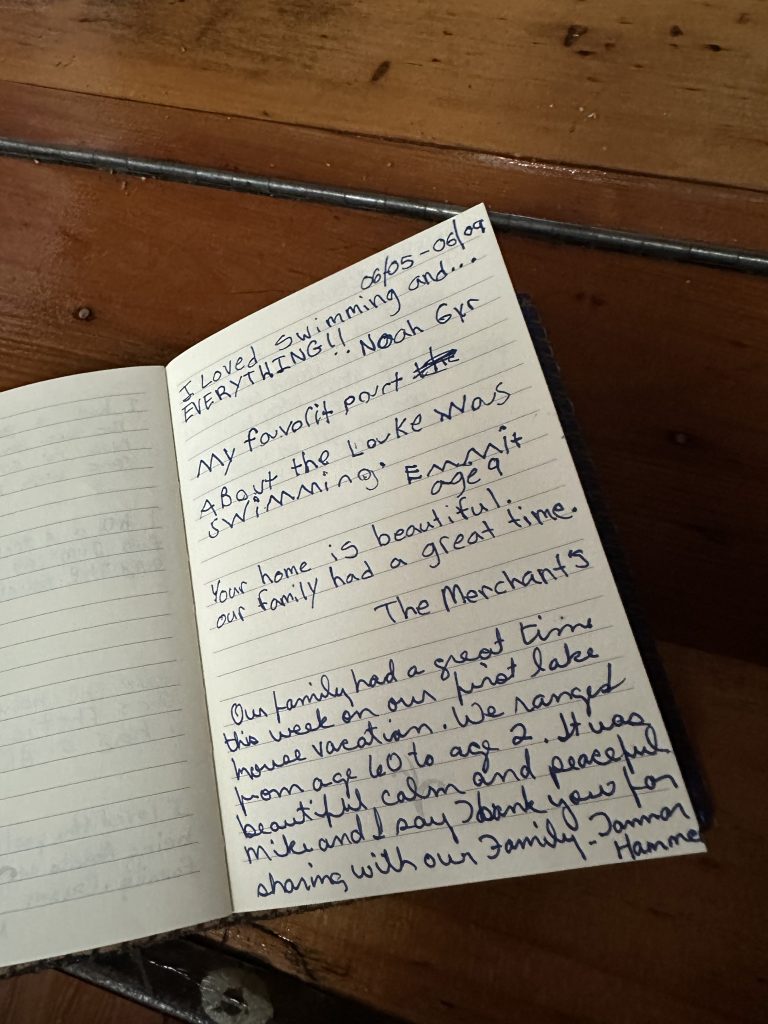 06/05-06/09
I Loved swimming and...
EVERYTHING!! Noah 6yr
My favorit part
About the Lake was
swimming. Emmit
age 9
Your home is beautiful.
our family had a great time.
The Merchant's
Our family had a great time
this week on our first lake
house vacation. We ranged
from age 60 to age 2. It was
beautiful calm and peaceful
mike and I say Thank you for
sharing with our Family -
Hamme